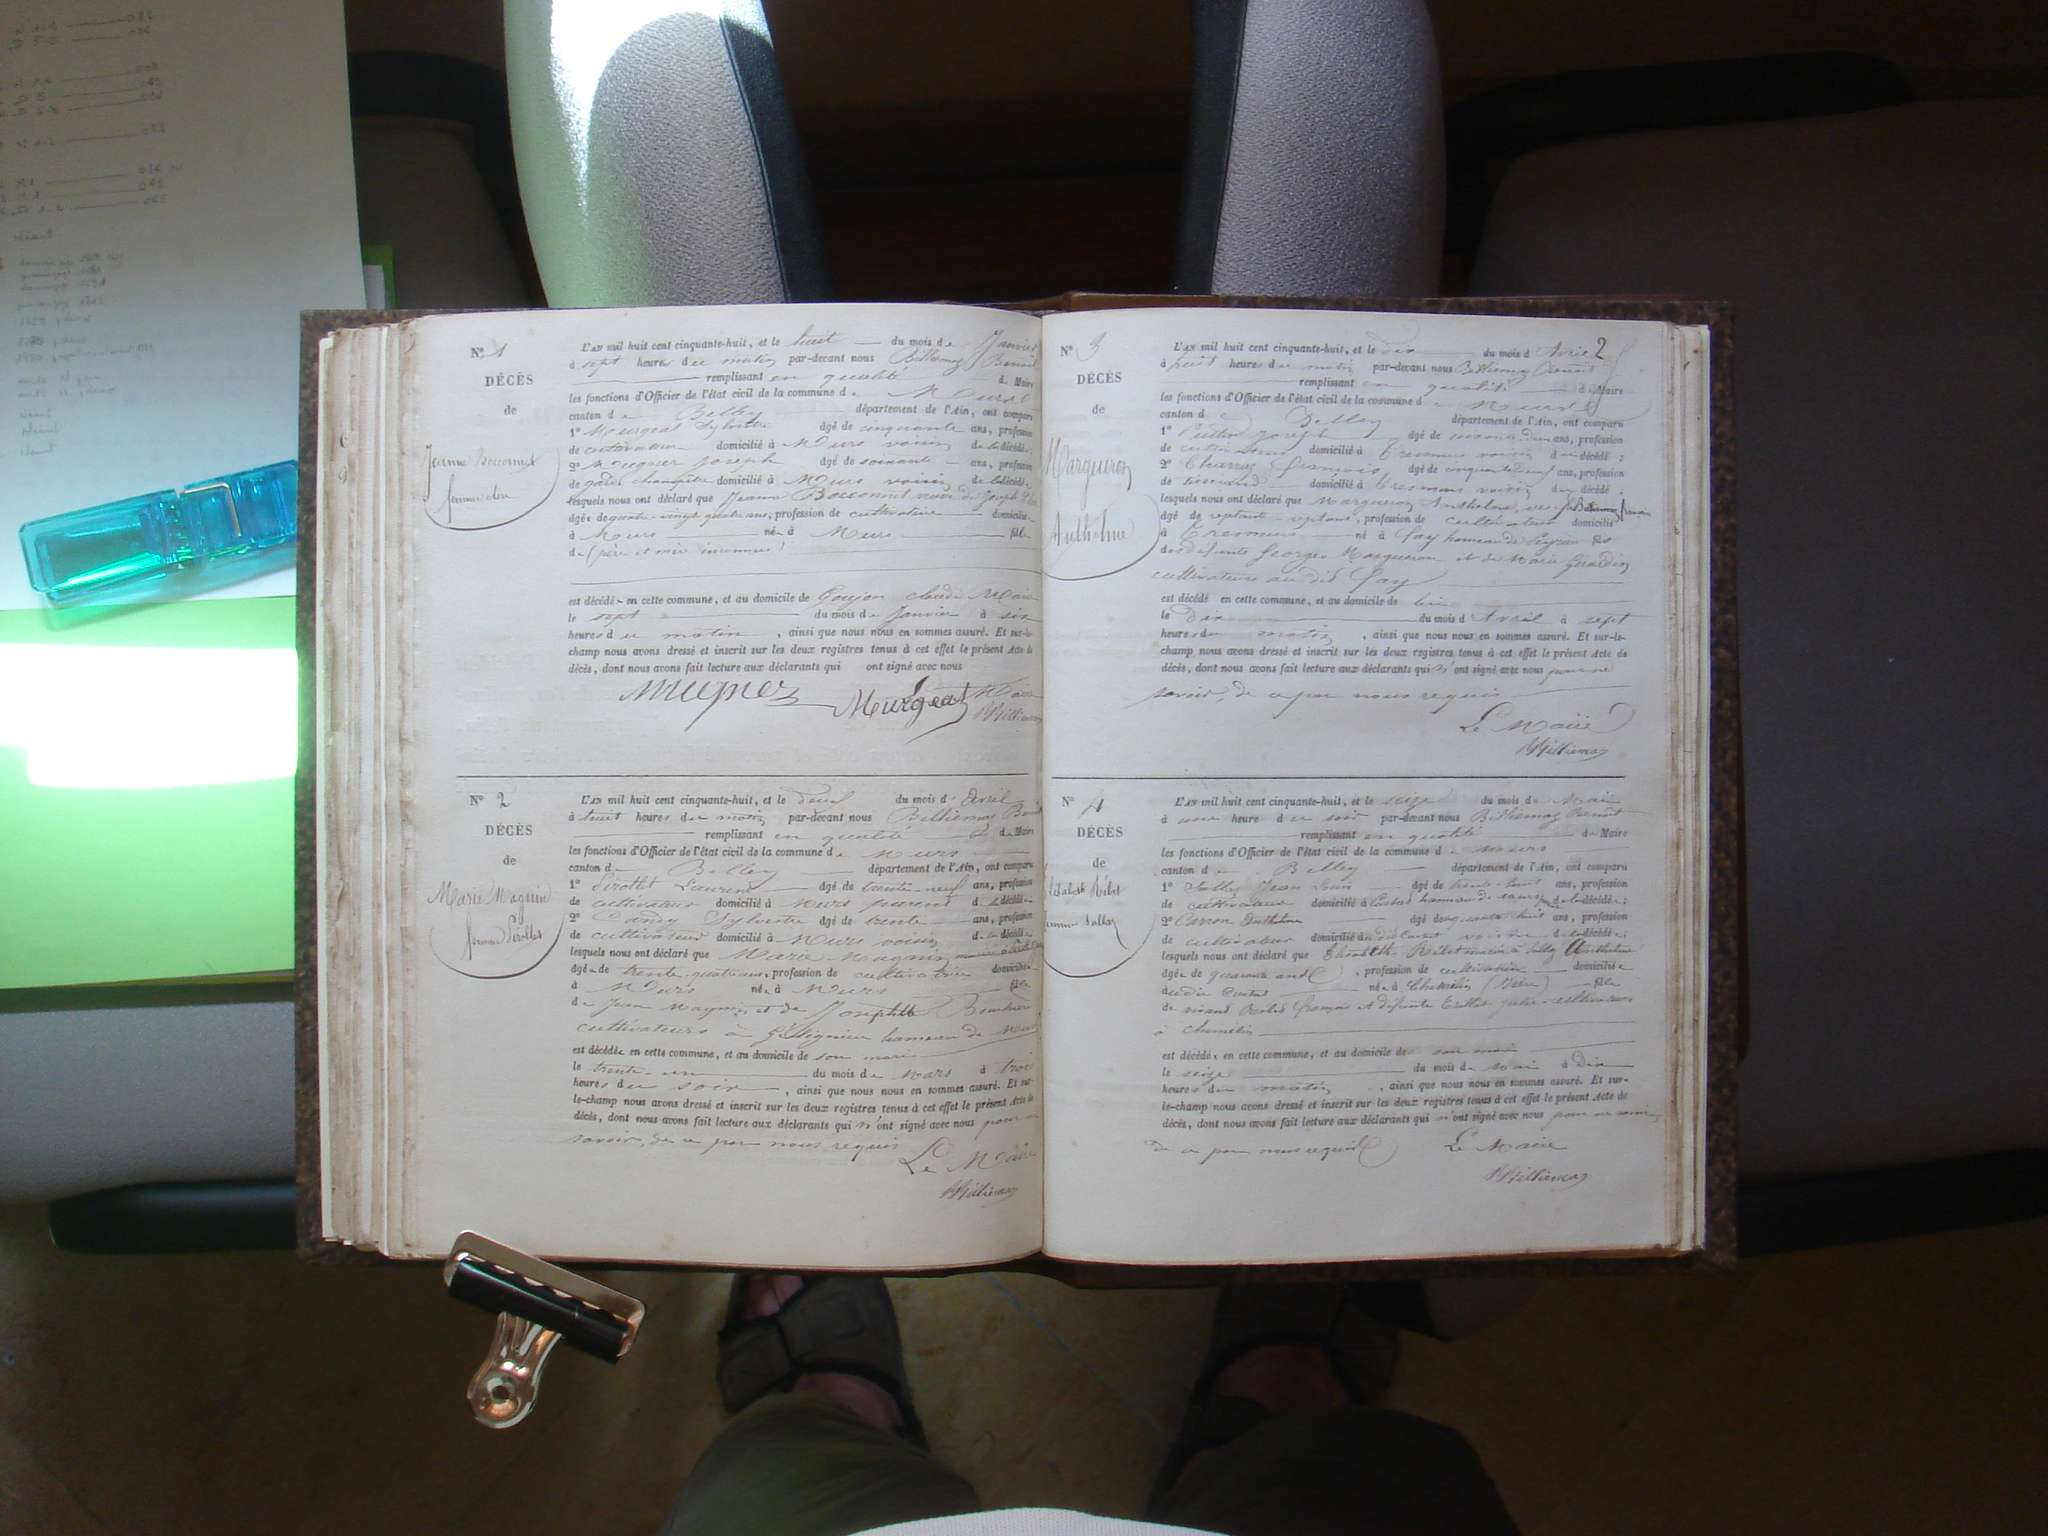 N° 1
DÉCÈS
de
Jeanne Bocconnet
L'AN mil huit cent cinquante-huit, et le huit du mois de Janvier
à sept heures du matin par-devant nous Billiemaz Benoit
remplissant en qualité de Maire
les fonctions d'Officier de l'état civil de la commune de Murs
canton de Belley département de l'Ain, ont comparu
1° Mourgeat Sylvestre âgé de cinquante ans, profession
de cultivateur domicilié à Murs voisin de la décédée
2° Mugner Joseph âgé de soixante ans, profession
de garde champêtre domicilié à Murs voisin de la décédée
lesquels nous ont déclaré que Jeanne Bocconnet veuve de Joseph
âgée de quatre-vingt quatre ans, profession de cultivatrice domiciliée
à Murs née à Murs fille
de (père et mère inconnus)
est décédée en cette commune, et au domicile de Goujon claude Maire
le sept du mois de Janvier à six
heures du matin, ainsi que nous nous en sommes assuré. Et sur-le-
champ nous avons dressé et inscrit sur les deux registres tenus à cet effet le présent Acte de
décès, dont nous avons fait lecture aux déclarants qui ont signé avec nous
Mugner Murgeat Maire
BBilliemaz
N° 2
DÉCÈS
de
Marie Magnin
femme Pérollet
L'AN mil huit cent cinquante-huit, et le deux du mois d'Avril
à huit heures du matin par-devant nous Billiemaz Benoit
remplissant en qualité de Maire
les fonctions d'Officier de l'état civil de la commune de Murs
canton de Belley département de l'Ain, ont comparu
1° Laurent âgé de trente-neuf ans, profession
de cultivateur domicilié à Murs parent de la décédée
2° Sylvestre âgé de trente ans, profession
de cultivateur domicilié à Murs voisin de la décédée
lesquels nous ont déclaré que Marie Magnin
âgée de trente-quatre ans, profession de cultivatrice domiciliée
à Murs née à Murs fille
de Jean Magnin et de Josephte
cultivateurs à hameau de Murs
est décédée en cette commune, et au domicile de son mari
le trente-un du mois de Mars à trois
heures du soir, ainsi que nous nous en sommes assuré. Et sur-
le-champ nous avons dressé et inscrit sur les deux registres tenus à cet effet le présent Acte de
décès, dont nous avons fait lecture aux déclarants qui n'ont signé avec nous pour ne
savoir, de ce par nous requis
Le Maire
BBilliemaz
2
N° 3
DÉCÈS
de
Margueron
Anthelme
L'AN mil huit cent cinquante-huit, et le dix du mois d'Avril
à huit heures du matin par-devant nous Billiemaz Benoit
remplissant en qualité de Maire
les fonctions d'Officier de l'état civil de la commune de Murs
canton de Belley département de l'Ain, ont comparu
1° Joseph âgé de ans, profession
de cultivateur domicilié à Tresmurs voisin du décédé;
2° Charvaz François âgé de cinquante neuf ans, profession
de domicilié à Tresmurs voisin du décédé;
lesquels nous ont déclaré que Margueron Anthelme, veuf
âgé de septante-sept ans, profession de cultivateur domicilié
à Tresmurs né à Fay hameau de Peyrieu fils
des défunts Georges Margueron et de Marie Girardin
cultivateurs au dit Fay
est décédé en cette commune, et au domicile de
le Dix du mois d'Avril à sept
heures du matin, ainsi que nous nous en sommes assuré. Et sur-le-
champ nous avons dressé et inscrit sur les deux registres tenus à cet effet le présent Acte de
décès, dont nous avons fait lecture aux déclarants qui n'ont signé avec nous pour ne
savoir, de ce par nous requis
Le Maire
BBilliemaz
N° 4
DÉCÈS
de
L'AN mil huit cent cinquante-huit, et le seize du mois de Mai
à une heure du soir par-devant nous Billiemaz Benoit
remplissant en qualité de Maire
les fonctions d'Officier de l'état civil de la commune de Murs
canton de Belley département de l'Ain, ont comparu
1° Jean Louis âgé de trente-huit ans, profession
de cultivateur domicilié à hameau de de la décédée;
2° Carron Anthelme âgé de ans, profession
de cultivateur domicilié voisin de la décédée;
lesquels nous ont déclaré que Elisabeth Anthelme
âgée de quarante ans, profession de cultivatrice domiciliée
née à Chimilin (Isère) fille
à Chimilin
est décédée en cette commune, et au domicile de son mari
le seize du mois de Mai à Dix
heures du matin, ainsi que nous nous en sommes assuré. Et sur-
le-champ nous avons dressé et inscrit sur les deux registres tenus à cet effet le présent Acte de
décès, dont nous avons fait lecture aux déclarants qui n'ont signé avec nous pour ne savoir,
de ce par nous requis Le Maire
BBilliemaz